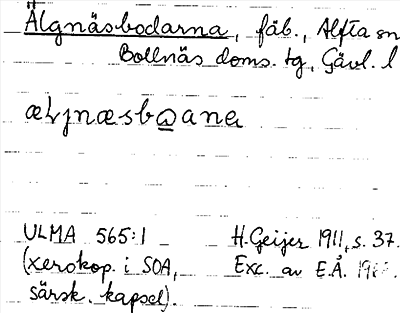 Älgnäsbodarna, fäb., Alfta sn
Bollnäs doms. tg, Gävl. l
ULMA 565:1 H. Geijer 1911, s. 37.
(xerokop. i SOA, Exc. av E.Å.
särsk. kapsel).